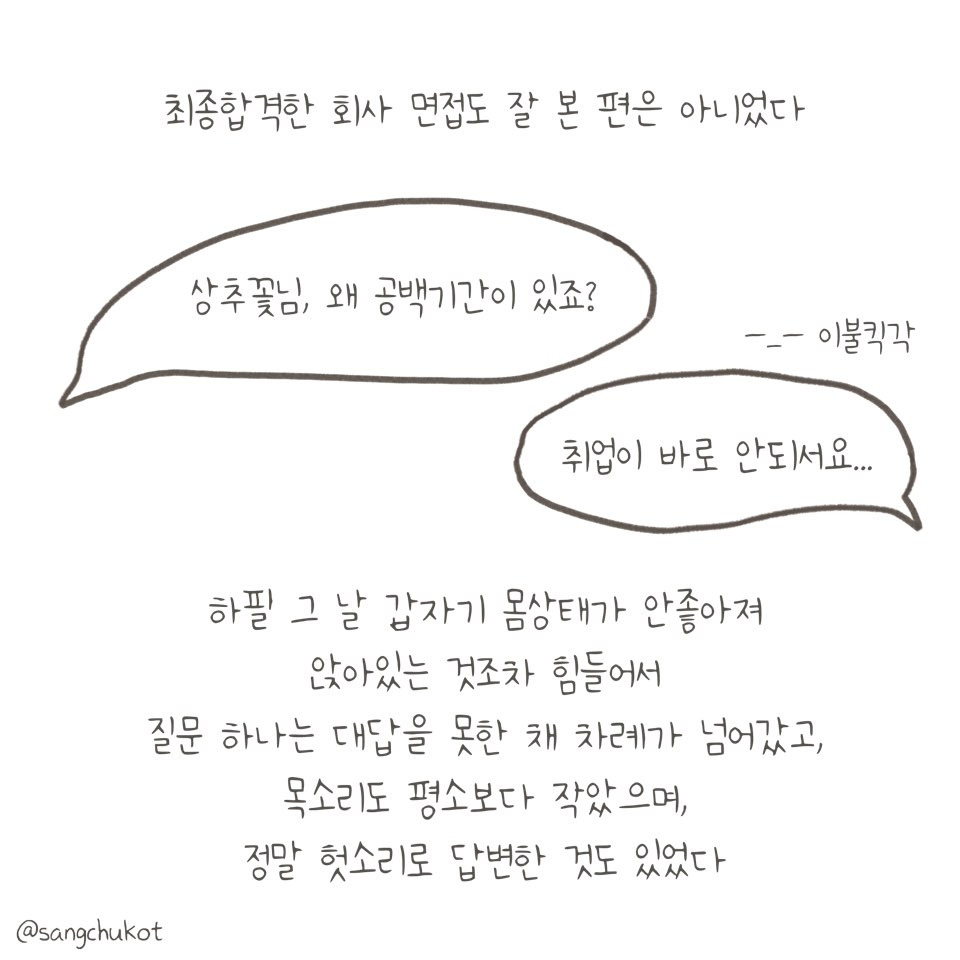 최종합격한 회사 면접도 잘 본 편은 아니었다
상추꽃님, 왜 공백기간이 있죠?
ㅡ_ㅡ 이불킥각
취업이 바로 안되서요...
하필 그 날 갑자기 몸상태가 안좋아져
앉아있는 것조차 힘들어서
질문 하나는 대답을 못한 채 차례가 넘어갔고,
목소리도 평소보다 작았으며,
정말 헛소리로 답변한 것도 있었다
@sangchukot